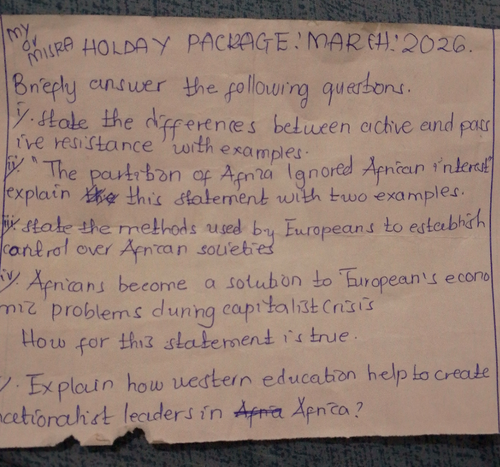 MY
or
MISRA HOLDAY PACKAGE: MARCH: 2026.
Briefly answer the following questions.
i/. state the differences between active and pass
ive resistance with examples.
ii/. "The partition of Africa Ignored African interest"
explain this statement with two examples.
iii/. state the methods used by Europeans to establish
control over African societies
iv/. Africans become a solution to European's econo
mic problems during capitalist crisis
How for this statement is true.
/. Explain how western education help to create
nationalist leaders in Africa?